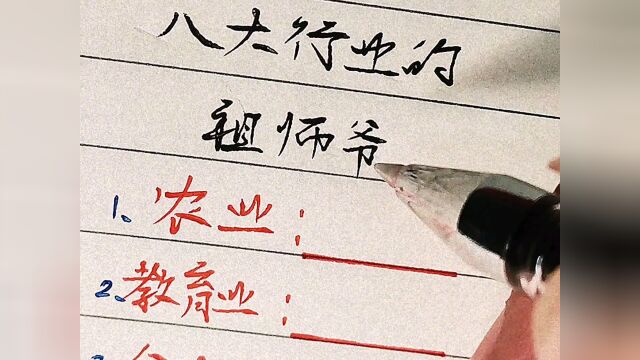 八大行业的
祖师爷
1、农业：
2、教育业：